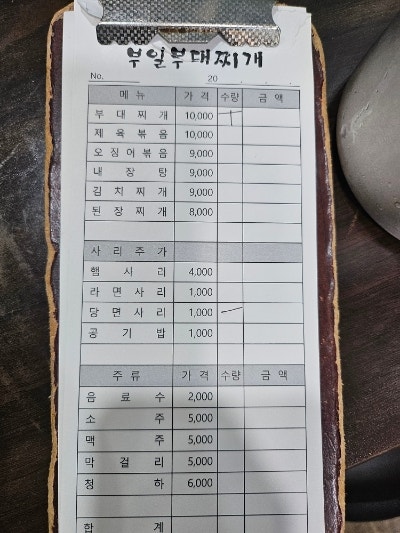 부일부대찌개
No. 20 . . .
메 뉴 가 격 수량 금 액
부 대 찌 개 10,000
제 육 볶 음 10,000
오 징 어 볶 음 9,000
내 장 탕 9,000
김 치 찌 개 9,000
된 장 찌 개 8,000
사 리 추 가
햄 사 리 4,000
라 면 사 리 1,000
당 면 사 리 1,000
공 기 밥 1,000
주 류 가 격 수량 금 액
음 료 수 2,000
소 주 5,000
맥 주 5,000
막 걸 리 5,000
청 하 6,000
합 계